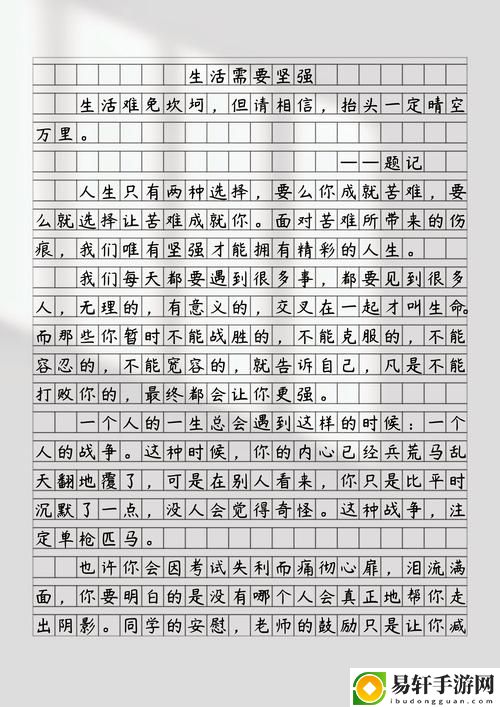 生活需要坚强
生活难免坎坷，但请相信，抬头一定晴空
万里。
——题记
人生只有两种选择，要么你成就苦难，要
么就选择让苦难成就你。面对苦难所带来的伤
痕，我们唯有坚强才能拥有精彩的人生。
我们每天都要遇到很多事，都要见到很多
人，无理的，有意义的，交叉在一起才叫生命。
而那些你暂时不能战胜的，不能克服的，不能
容忍的，不能宽容的，就告诉自己，凡是不能
打败你的，最终都会让你更强。
一个人的一生总会遇到这样的时候：一个
人的战争。这种时候，你的内心已经兵荒马乱
天翻地覆了，可是在别人看来，你只是比平时
沉默了一点，没人会觉得奇怪。这种战争，注
定单枪匹马。
也许你会因考试失利而痛彻心扉，泪流满
面，你要明白的是没有哪个人会真正地帮你走
出阴影。同学的安慰，老师的鼓励只是让你减
易轩手游网
ibudongguan.com